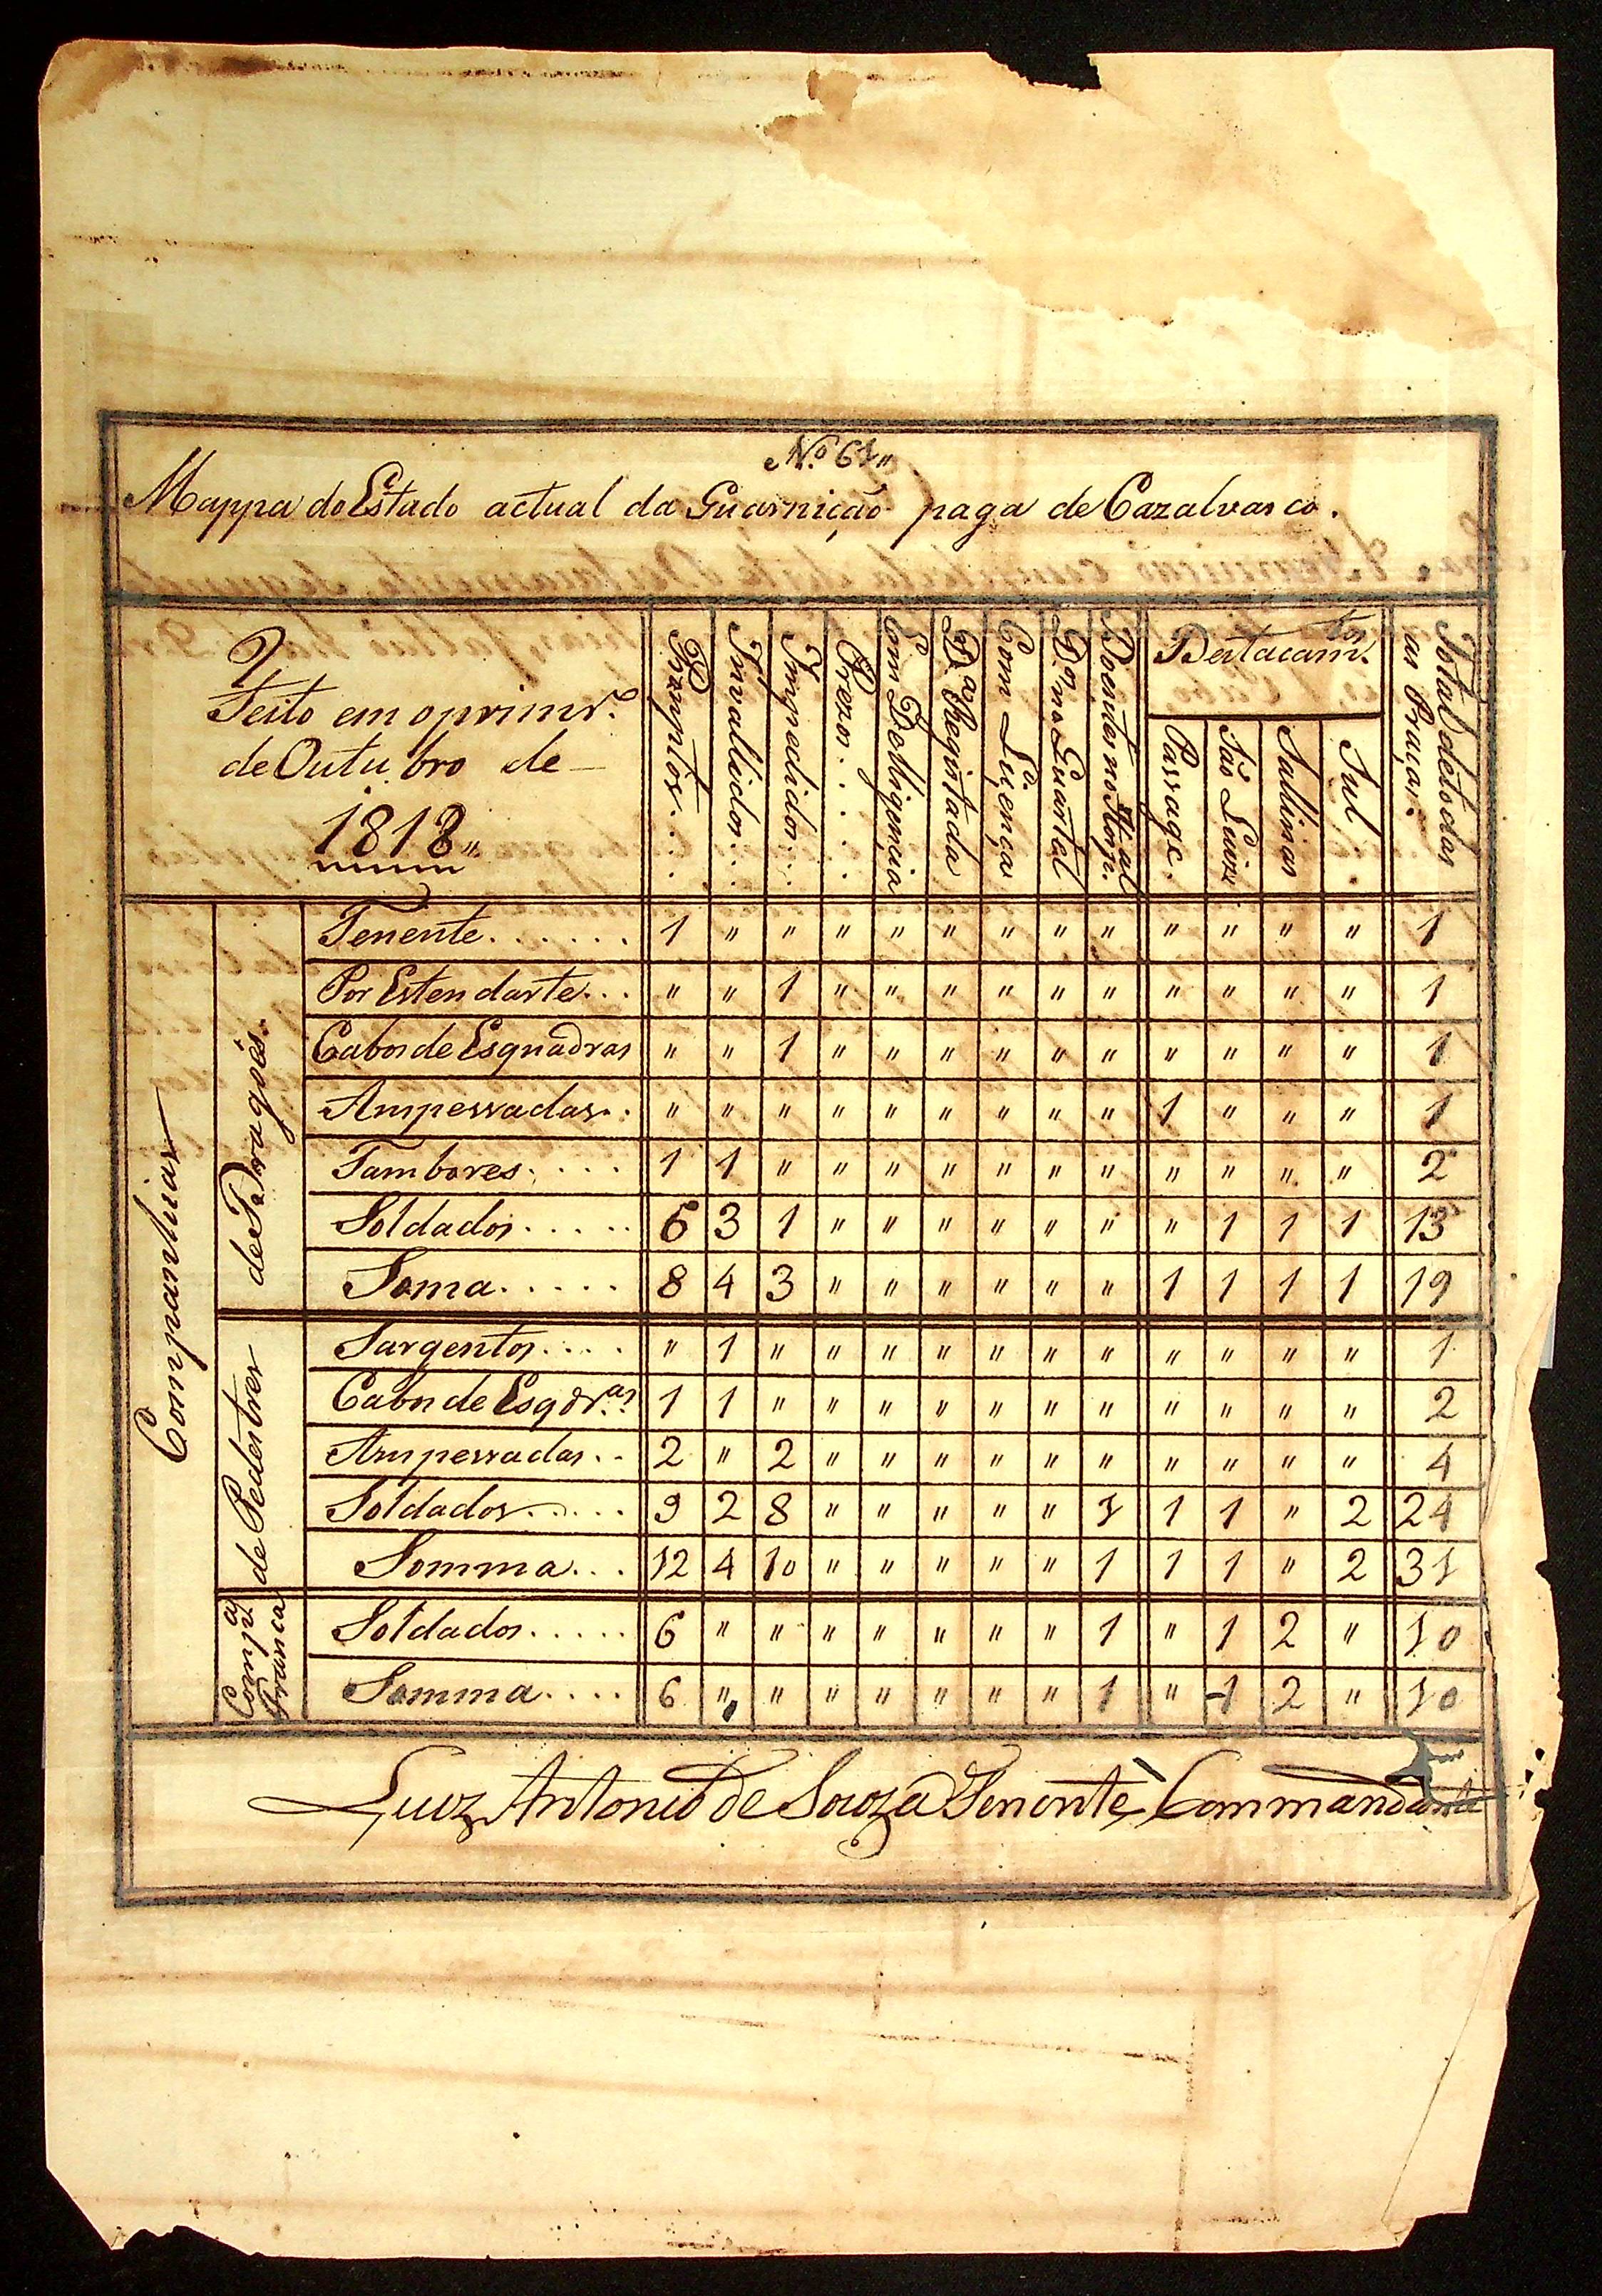 N.º 61"
Mappa do Estado actual da Guarnição paga de Cazalvasco.
Feito em o primr.º
de Outubro de
1818"
Promptos....
Invallidos...
Impedidos...
Prezos....
Com Delligencia
D.ª Registada
Com Liçenças
D.º no Quartal
Doentes no Hosp.al
Destacam.tos
Passage.
São Luiz
Sallinas
Sul.
Total de todas
as Praças.
Companhias
de Dragoẽs.
Tenente....... 1 " " " " " " " " " " " " 1
Por Estendarte... " " 1 " " " " " " " " " " 1
Cabos de Esquadras " " 1 " " " " " " " " " " 1
Ampessadas.. " " " " " " " " " 1 " " " 1
Tambores.... 1 1 " " " " " " " " " " " 2
Soldados..... 6 3 1 " " " " " " " 1 1 1 13
Soma..... 8 4 3 " " " " " " 1 1 1 1 19
de Pedestres
Sargentos.... " 1 " " " " " " " " " " " 1
Cabos de Esqdr.as 1 1 " " " " " " " " " " " 2
Ampessadas.. 2 " 2 " " " " " " " " " " 4
Soldados..... 9 2 8 " " " " " 1 1 1 " 2 24
Somma... 12 4 10 " " " " " 1 1 1 " 2 31
Comp.ª
Franca
Soldados..... 6 " " " " " " " 1 " 1 2 " 10
Somma.... 6 " " " " " " " 1 " 1 2 " 10
Luiz Antonio de Souza Tenente Commandante